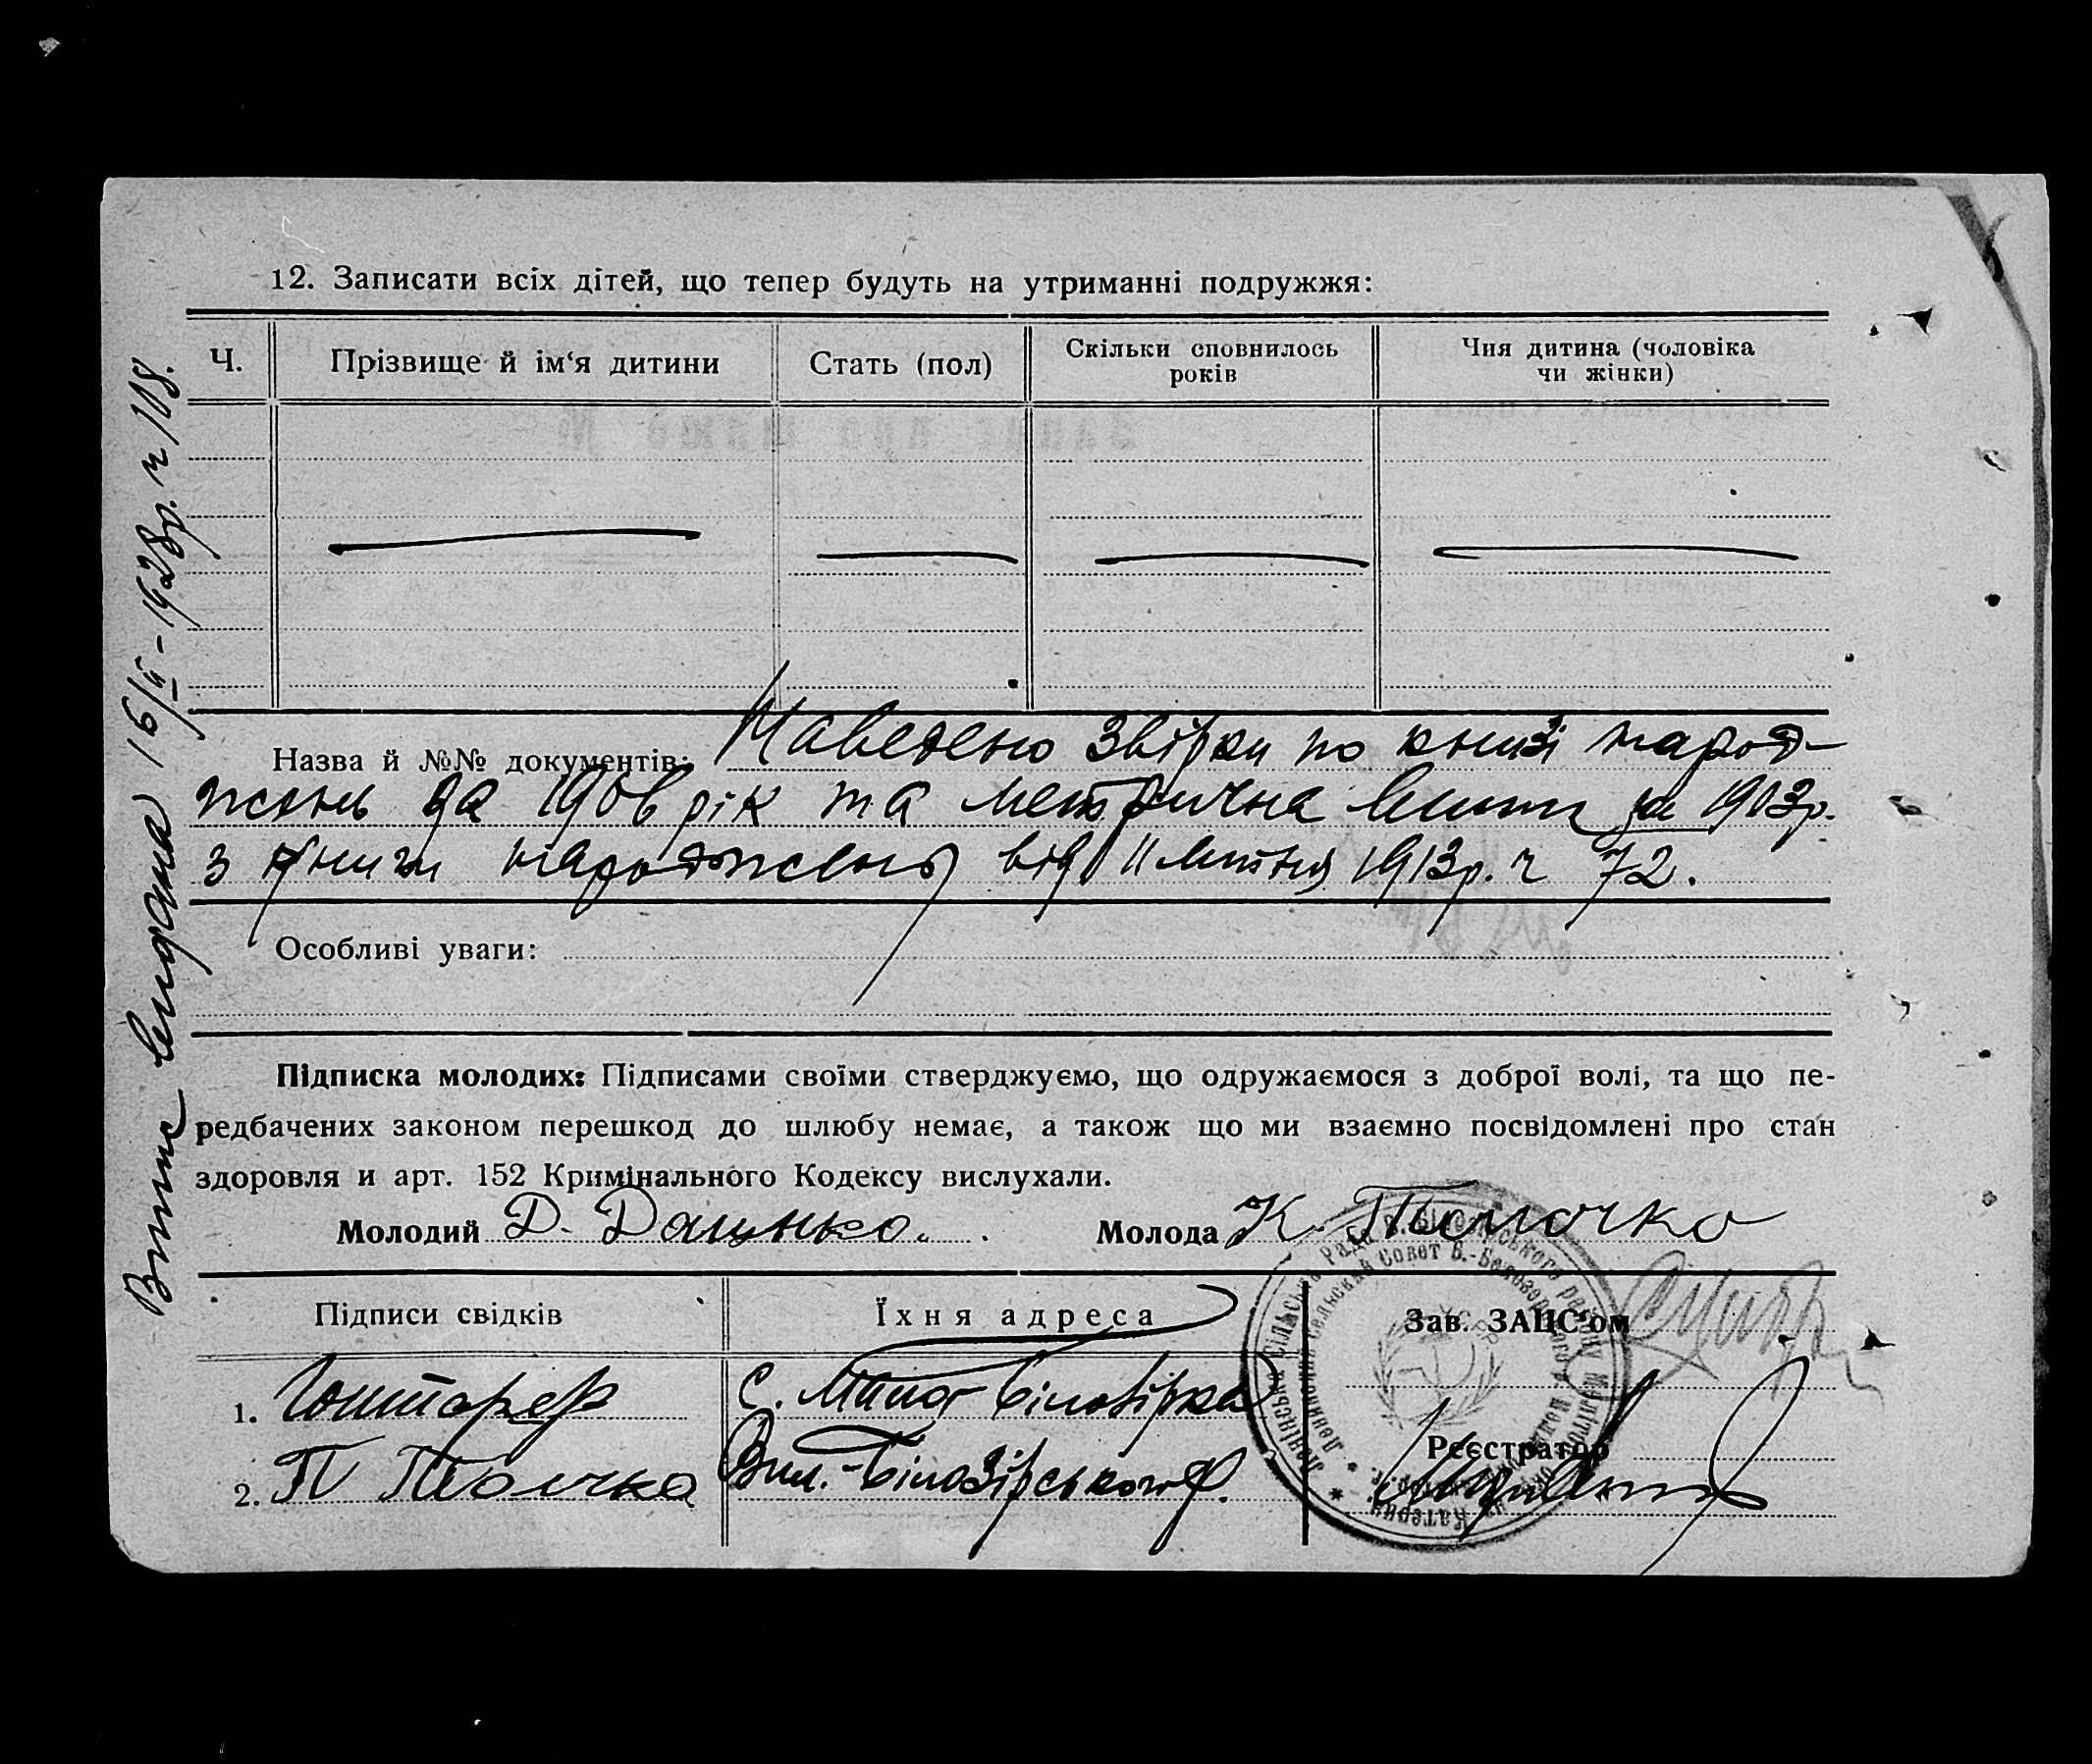 12. Записати всіх дітей, що тепер будуть на утриманні подружжя:
Ч.
Прізвище й ім‘я дитини
Стать (пол)
Скільки сповнилось
років
Чия дитина (чоловіка
чи жінки)
Назва й №№ документів: Наведено звірки по книзі народ-
жень за 1906 рік та метрична випись за 1903р.
з книги народжень від 11 лютня 1913р. ч 72.
Особливі уваги:
Підписка молодих: Підписами своїми стверджуємо, що одружаємося з доброї волі, та що пе-
редбачених законом перешкод до шлюбу немає, а також що ми взаємно посвідомлені про стан
здоровля и арт. 152 Кримінального Кодексу вислухали.
Молодий Д. Даценко.
Молода К.
Підписи свідків
Їхня адреса
Зав. ЗАЦС‘ом
1.
С. Мала Білозірка
Реєстратор
2. П
Вел.-Білозірського р.
видана 16/II-1928р. ч 108.
Сільська Рада В. Білозірського району
Сельский Совет В.-Белозерского